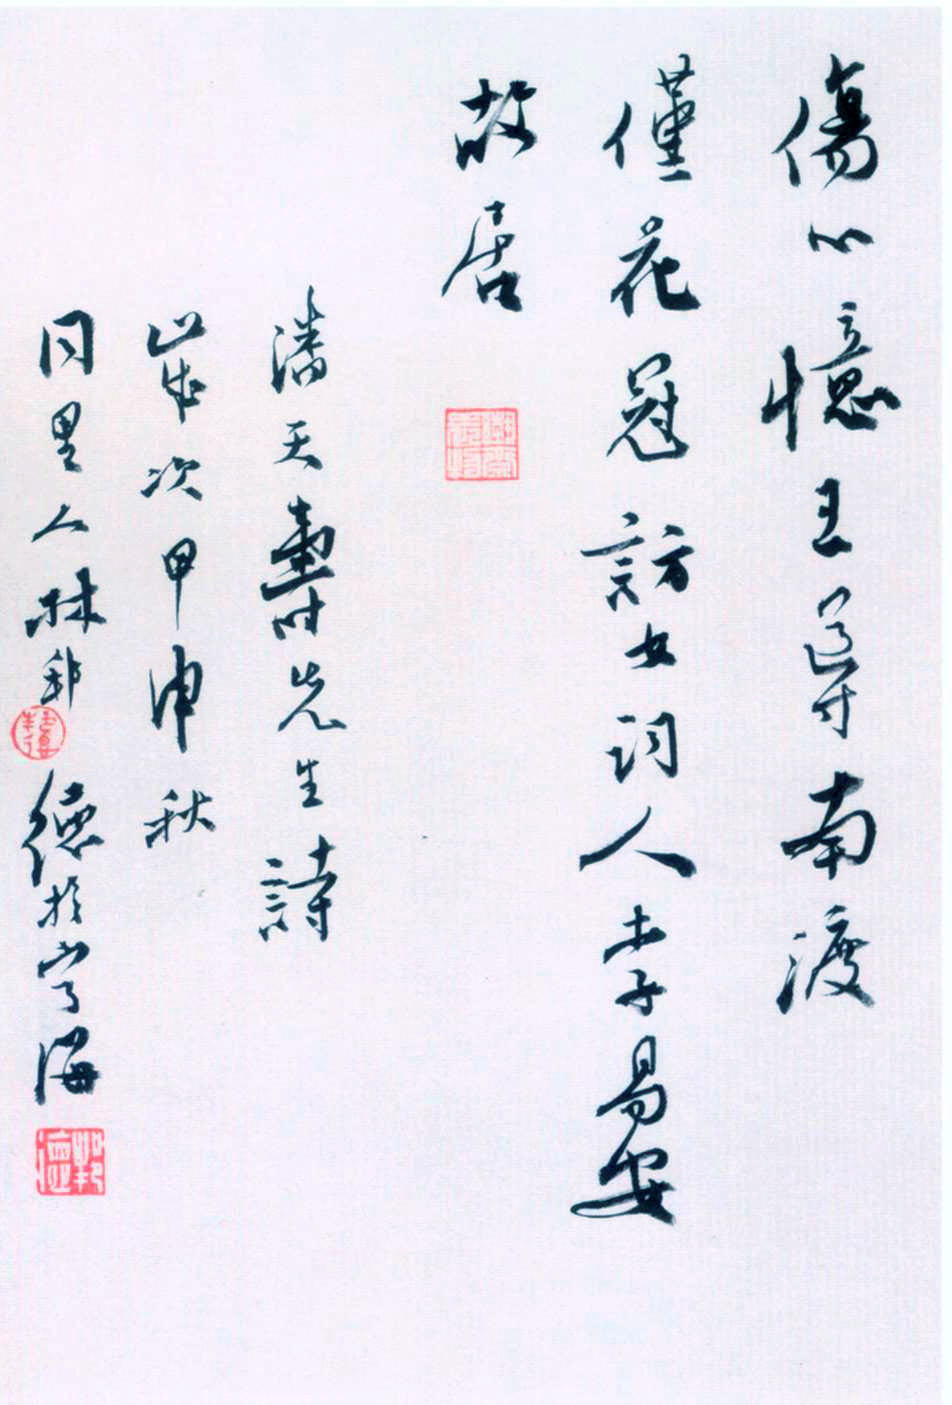 傷心憶王孫南渡
僅花冠訪女詞人李易安
故居
潘天壽先生詩
歲次甲申秋
同里人林邦德於寧海
邦德